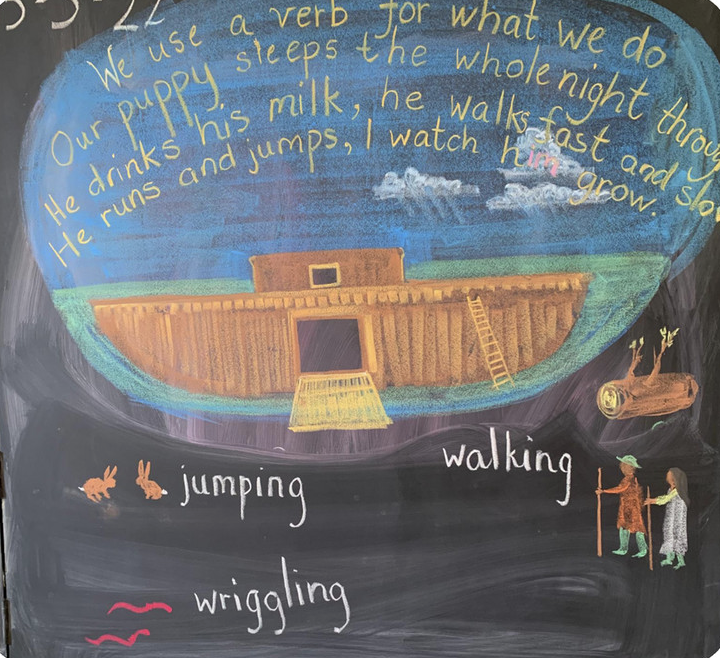 5-5-22
We use a verb for what we do
Our puppy sleeps the whole night throug
He drinks his milk, he walks fast and slo
He runs and jumps, I watch him grow.
walking
jumping
wriggling